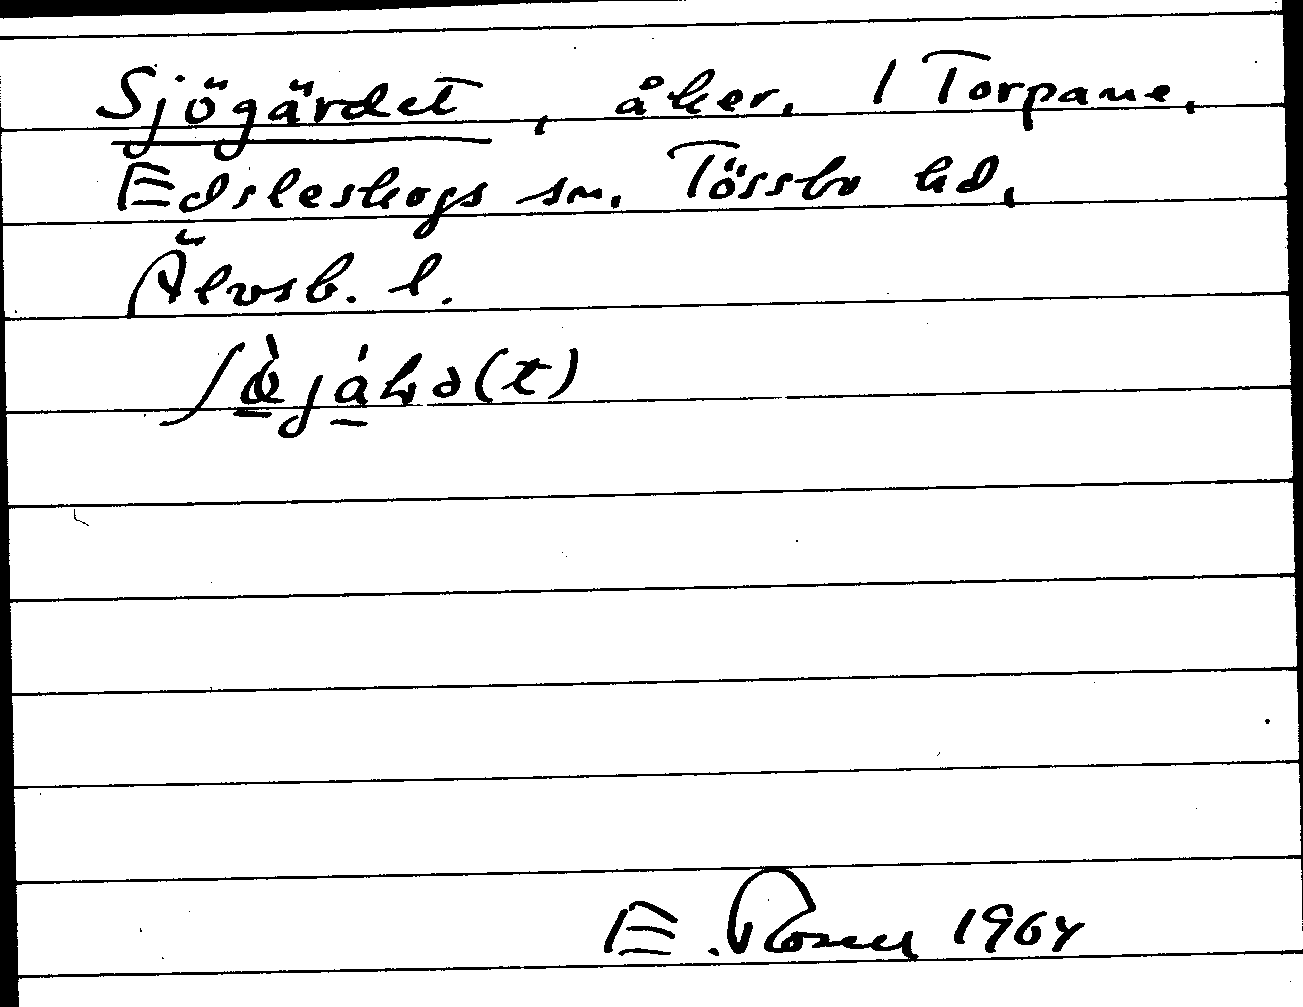 Sjögärdet, åker. / Torpane,
Edsleskogs sn. Tössbo hd,
Älvsb. l.
E. Rosell 1964